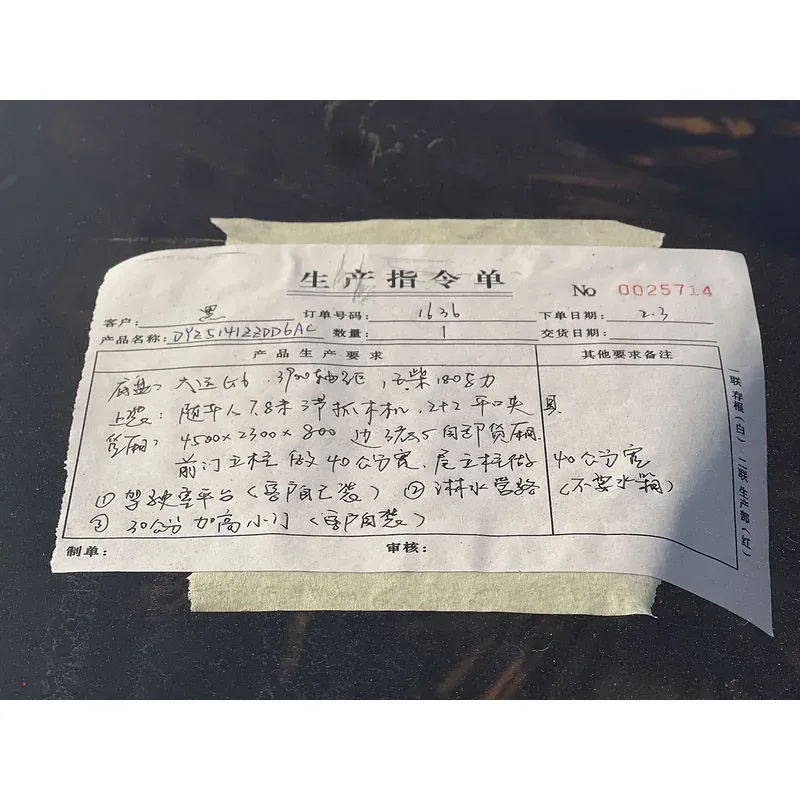 生产指令单
No 0025714
客户： 黑 订单号码： 1636 下单日期： 2.3
产品名称： DYZ5141ZZDD6AC 数量： 1 交货日期：
产品生产要求 其他要求备注
底盘： 大运G6 . 3900轴距 , 玉柴180马力
上装： 随车人7.8米3节抓木机 , 2+2 平口夹具
货厢： 4500×2300×800 边3底5自卸货厢.
前门立柱做40公分宽. 后立柱做40公分宽
① 驾驶室平台（客户自己装） ② 淋水管路（不要水箱）
③ 30公分加高小门（客户自装）
制单： 审核：
一联 存根（白） 二联 生产部（红）